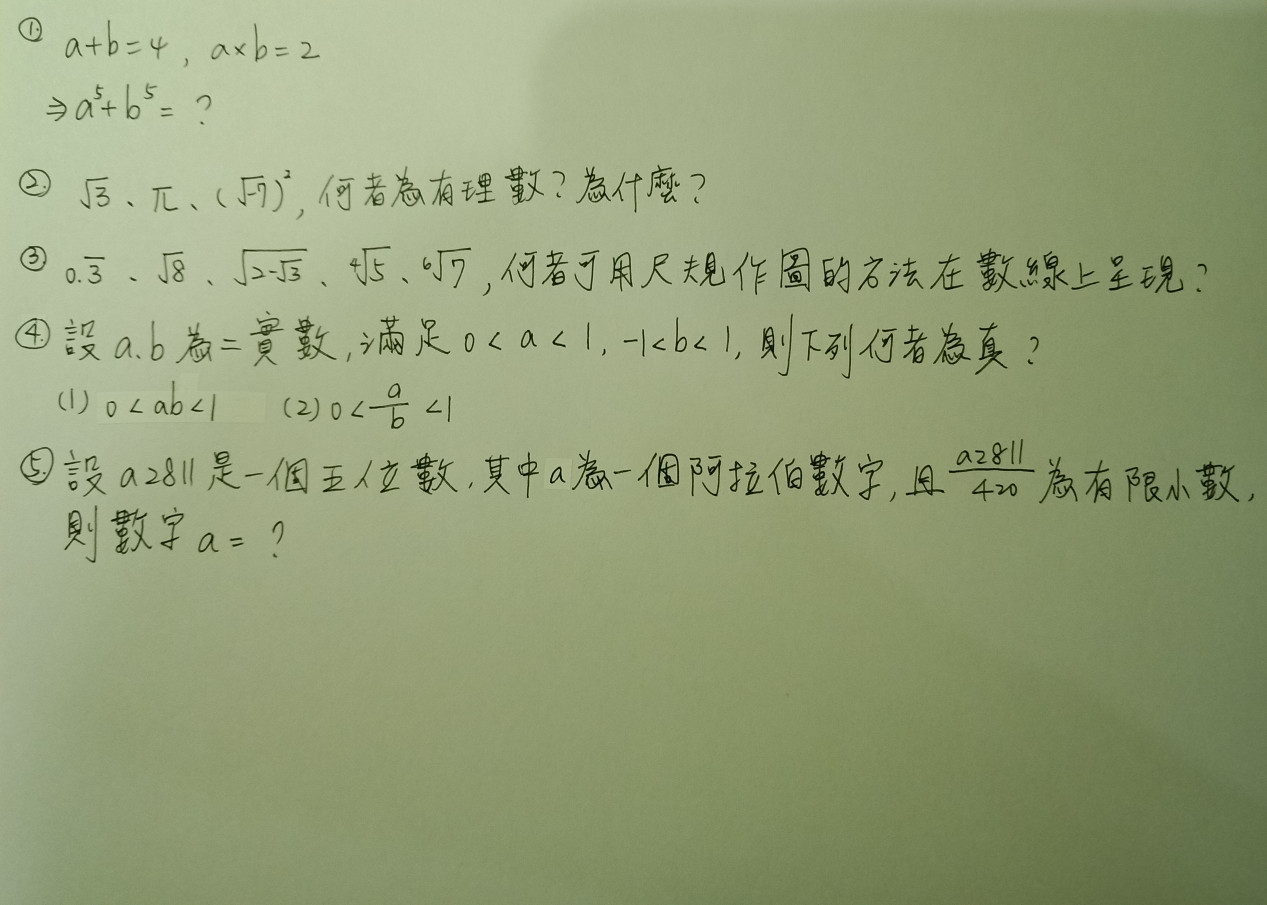 ① a+b=4, a×b=2
⇒a⁵+b⁵= ?
② √3、π、(√-7)², 何者為有理數?為什麼?
③ 0.3̅、√8、√(2-√3)、⁴√5、⁶√7, 何者可用尺規作圖的方法在數線上呈現?
④ 設a.b為二實數,滿足0<a<1, -1<b<1, 則下列何者為真?
(1) 0<ab<1 (2) 0<a/b<1
⑤ 設a2811是一個五位數,其中a為一個阿拉伯數字,且a2811/420為有限小數,
則數字a= ?